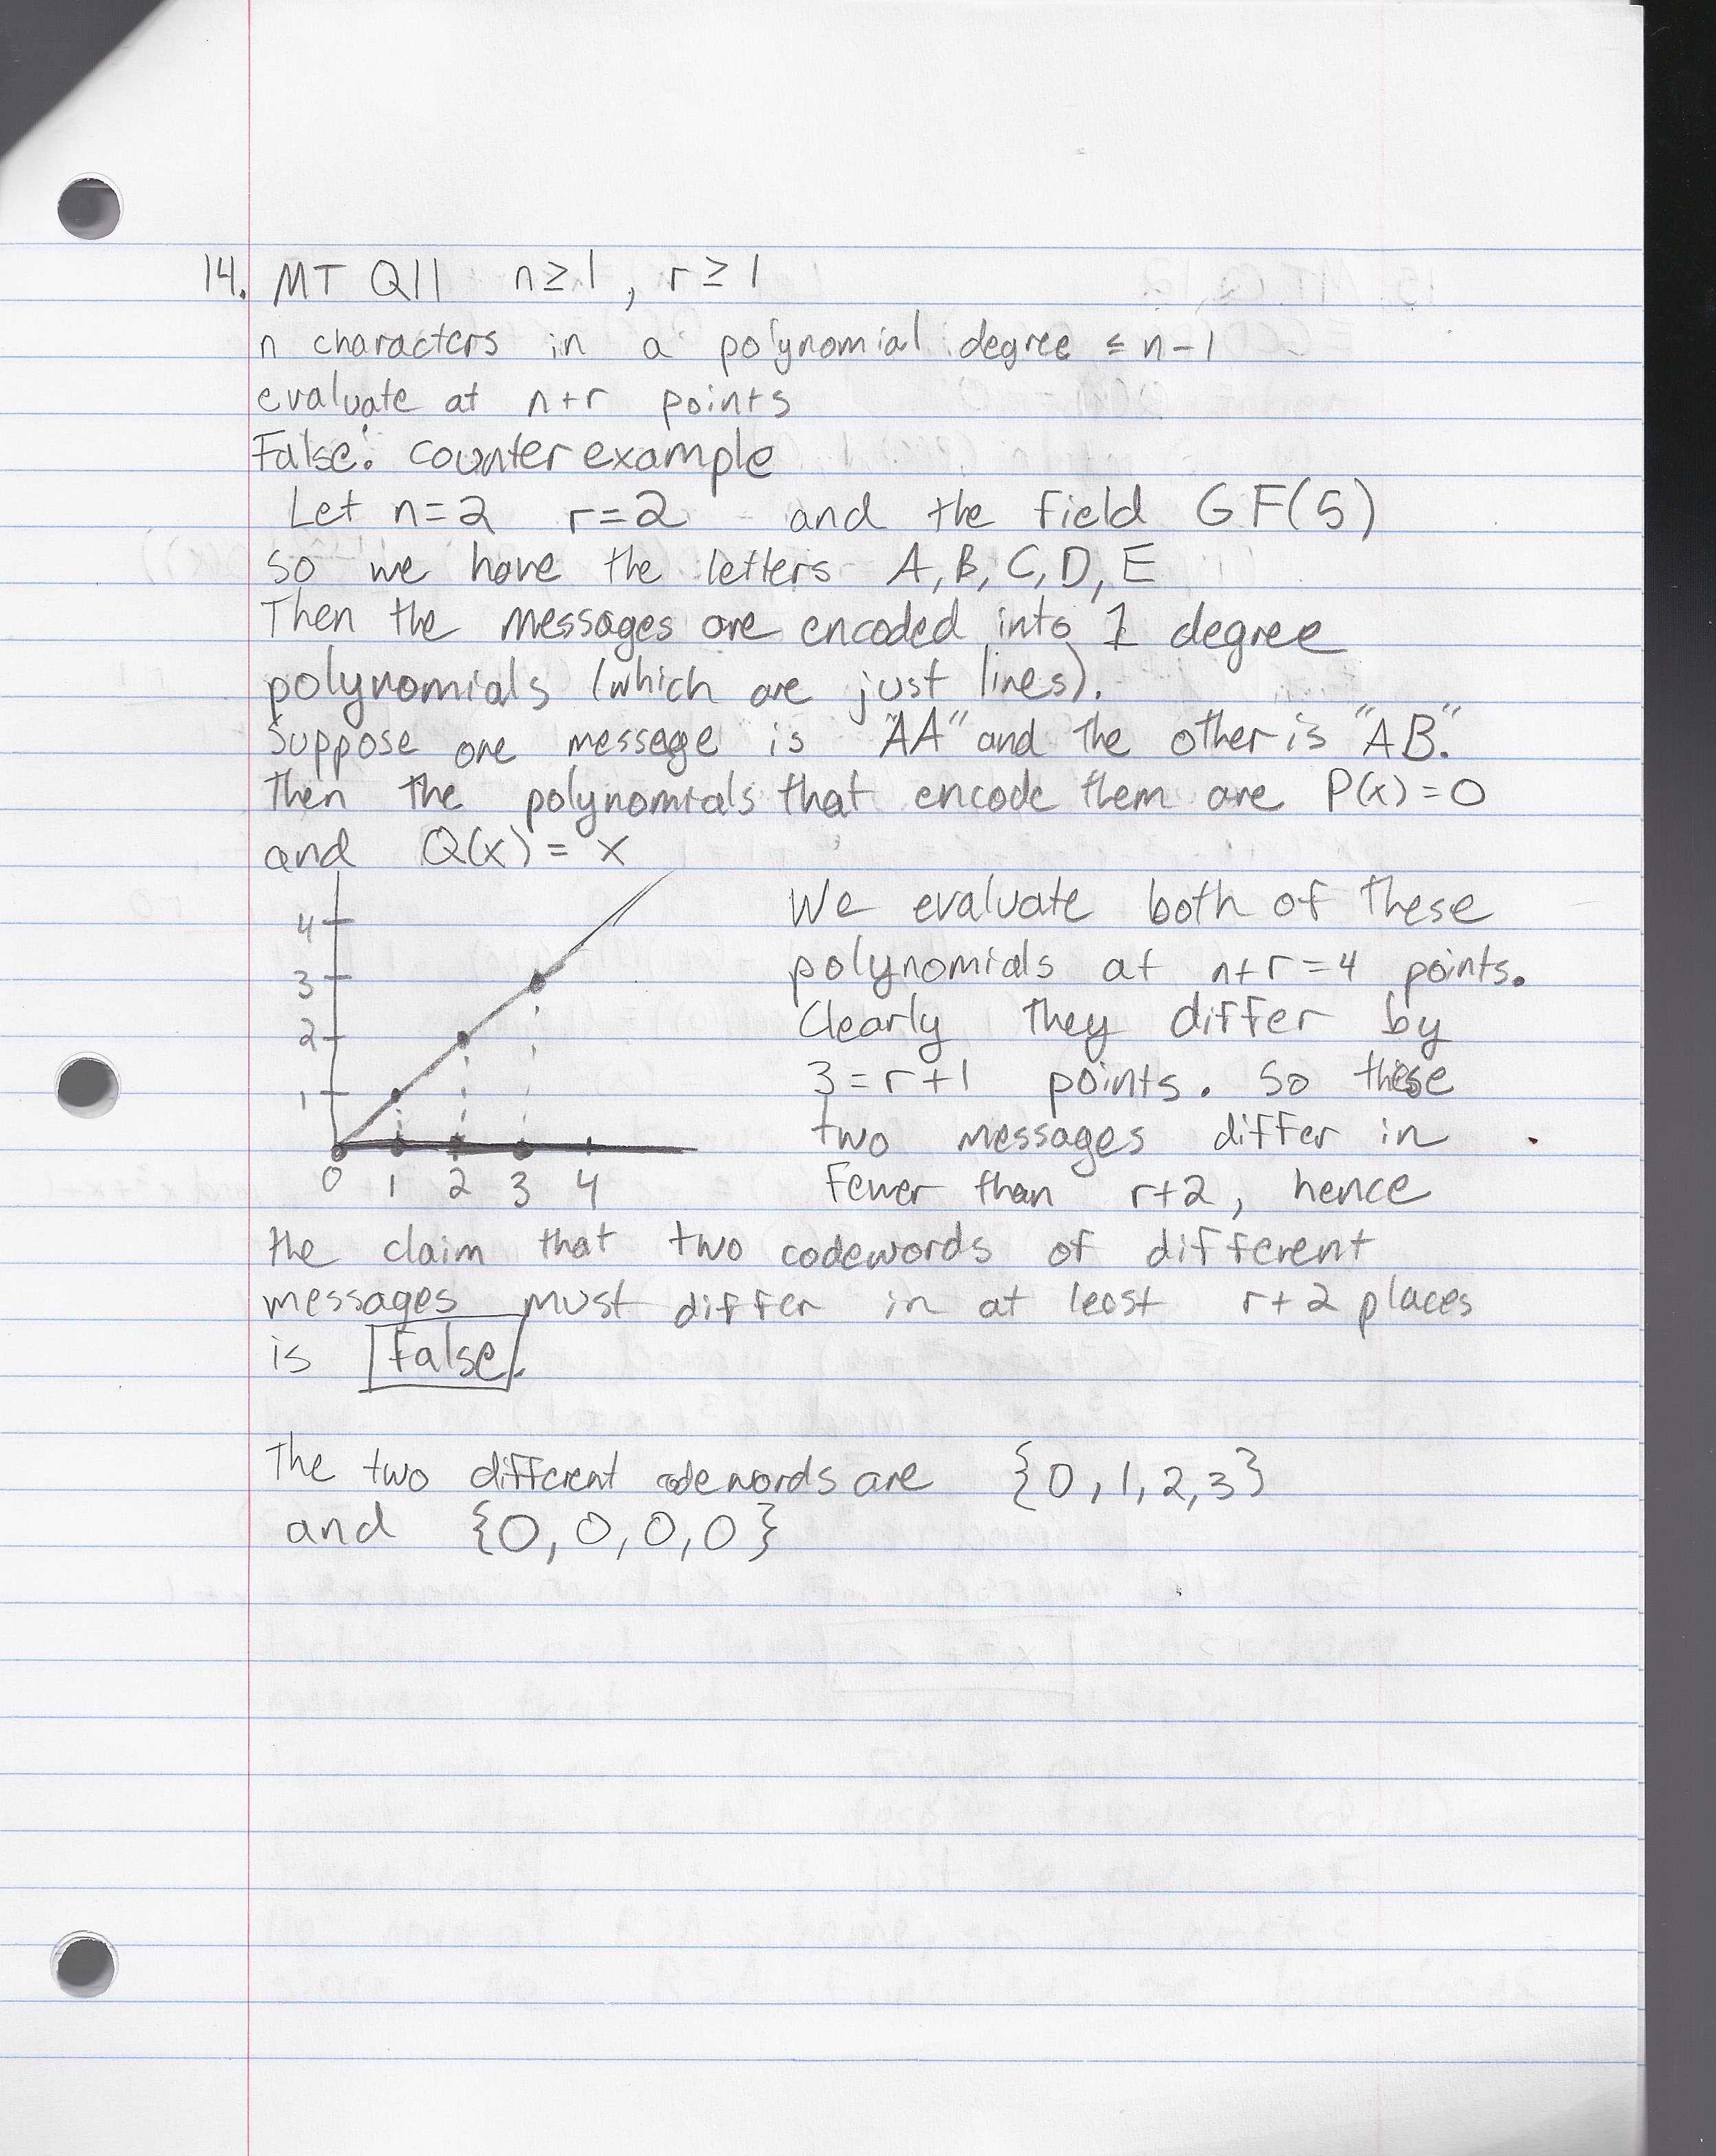 14. MT Q11 n≥1, r≥1
n characters in a polynomial degree ≤ n-1
evaluate at n+r points
False: counter example
Let n=2 r=2 and the field GF(5)
so we have the letters A, B, C, D, E
Then the messages are encoded into 1 degree
polynomials (which are just lines).
Suppose one message is "AA" and the other is "AB."
Then the polynomials that encode them are P(x)=0
and Q(x) = x
4
3
2
1
0 1 2 3 4
We evaluate both of these
polynomials at n+r=4 points.
Clearly they differ by
3=r+1 points. So these
two messages differ in
fewer than r+2, hence
the claim that two codewords of different
messages must differ in at least r+2 places
is False.
The two different codewords are {0,1,2,3}
and {0,0,0,0}